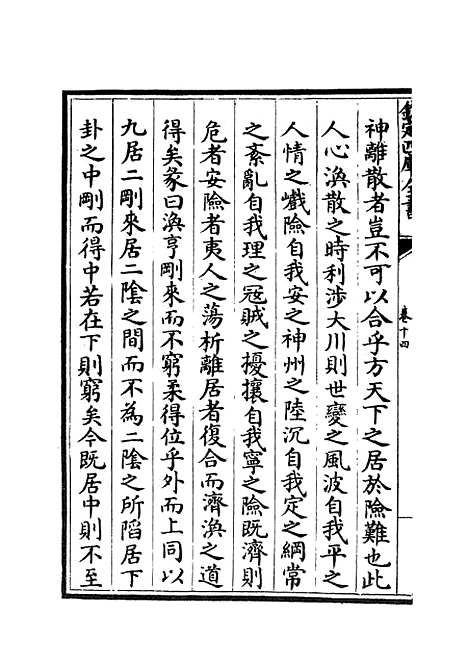 欽定四庫全書
卷十四
神離散者豈不可以合乎方天下之居於險難也此
人心渙散之時利涉大川則世變之風波自我平之
人情之巇險自我安之神州之陸沉自我定之綱常
之紊亂自我理之冦賊之擾攘自我寧之險既濟則
危者安險者夷人之蕩析離居者復合而濟渙之道
得矣彖曰渙亨剛來而不窮柔得位乎外而上同以
九居二剛來居二陰之間而不為二陰之所䧟居下
卦之中剛而得中若在下則窮矣今既居中則不至